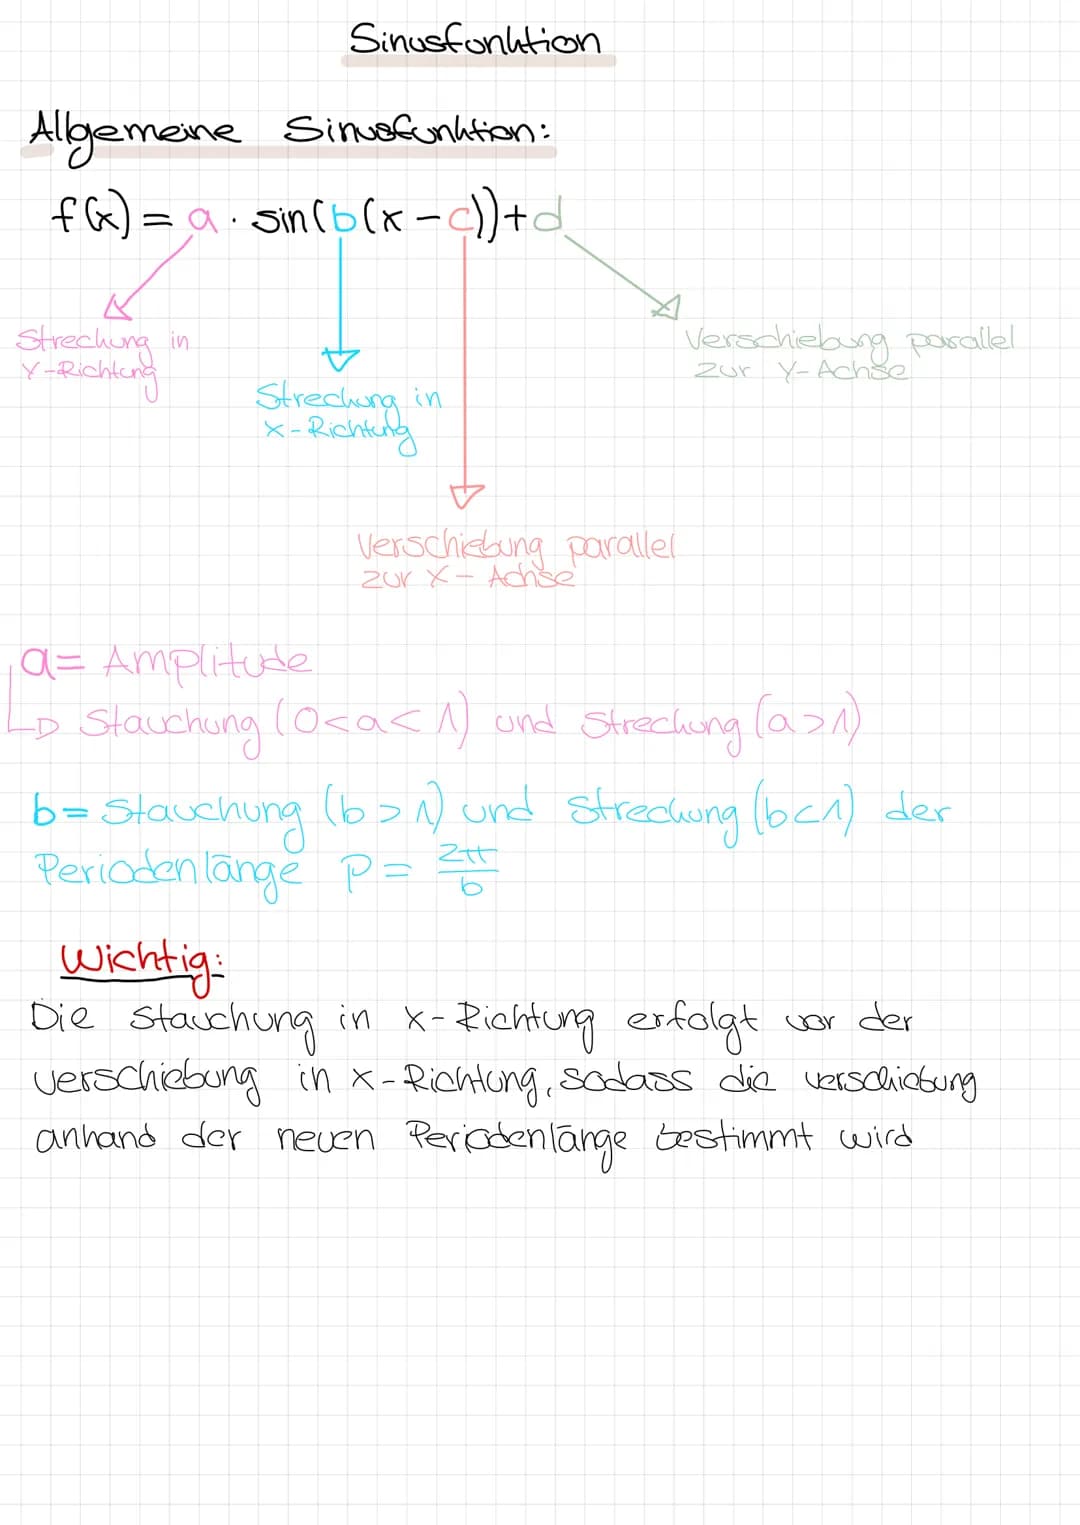 Sinusfonktion
Allgemeine Sinusfunktion:
f(x) = a · sin(b(x - c)) + d
Strechung in
Y-Richtung
Strechung in
X-Richtung
Verschiebung parallel
zur Y-Achse
Verschiebung parallel
zur X-Achse
a = Amplitude
Stauchung (0<a<1) und Strechung (a>1)
b = Stauchung (b>1) und Strechung (b<1) der
Periodenlänge P = 2π/b
Wichtig:
Die Stauchung in x-Richtung erfolgt vor der
verschiebung in x-Richtung, sodass die verschiebung
anhand der neuen Periodenlänge bestimmt wird